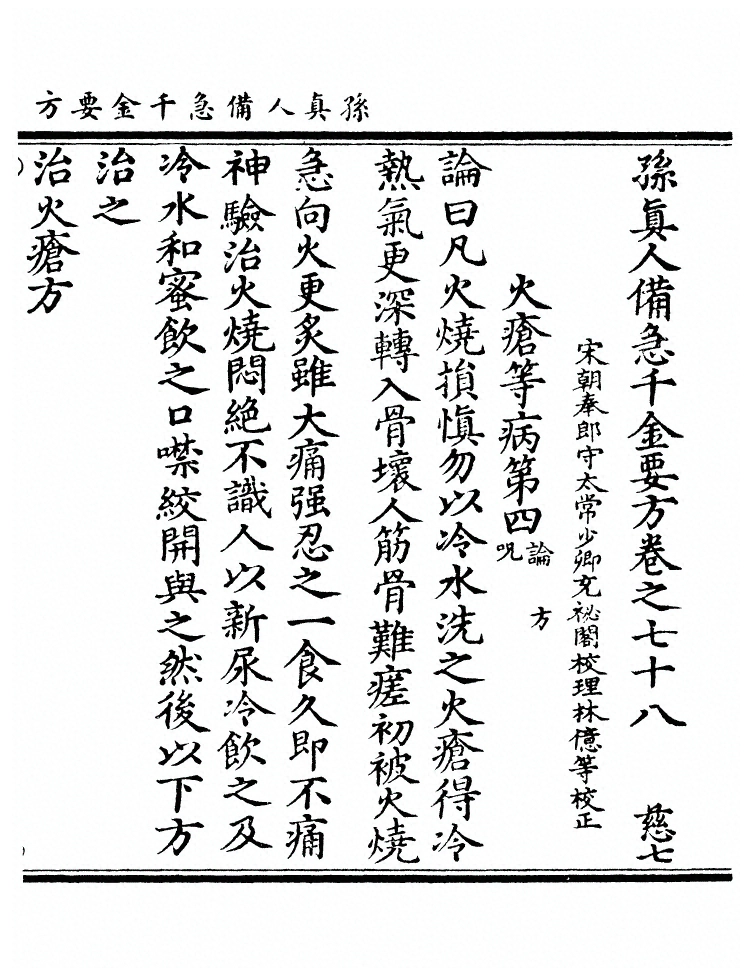 孫真人備急千金要方
孫眞人備急千金要方卷之七十八 慈七
宋朝奉郎守太常少卿充祕閣校理林億等校正
火瘡等病第四 論 方 呪
論曰凡火燒損愼勿以冷水洗之火瘡得冷
熱氣更深轉入骨壞人筋骨難瘥初被火燒
急向火更炙雖大痛强忍之一食久即不痛
神驗治火燒悶絶不識人以新尿冷飲之及
冷水和蜜飲之口噤絞開與之然後以下方
治之
治火瘡方